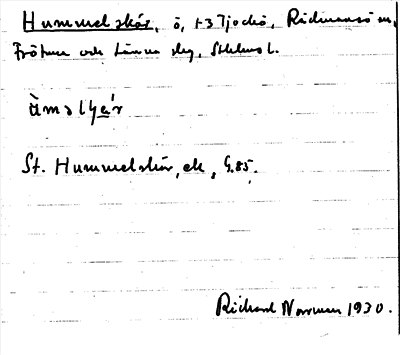 Hummelskär, ö, +37jockö, Ridmansö m,
Frötuna och Länna slg, Sthlms l.
àməlʂá̱r
St. Hummelskär, ek, G.85.
Richard Norrman 1930.